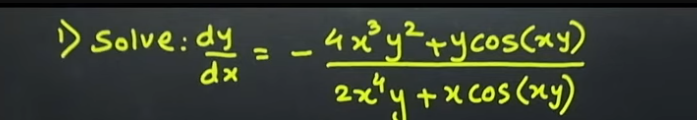 1) Solve: dy/dx = - (4x³y² + y cos(xy))/(2x⁴y + x cos(xy))